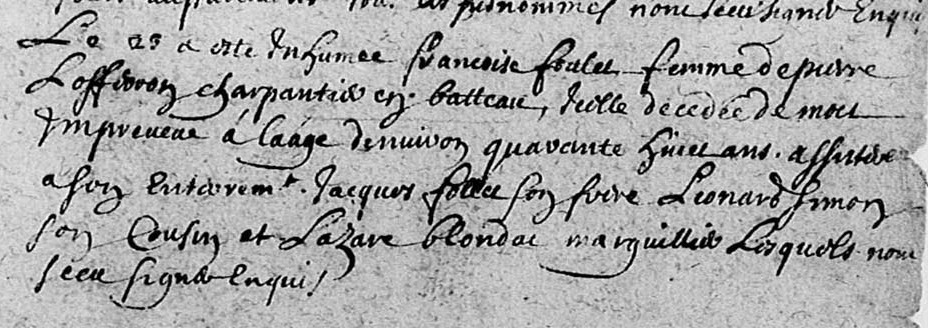 prenommes nont sceu signer Enquis
Le 25 a este Inhumee francoise follet femme de pierre
Loffivron charpantier en batteau, Icelle decedee de mort
Impreveue á láage denviron quarante huict ans. assister
a son Enterrem.t Jacques follet son frere Leonard simon
son Cousin et Lazare blondat marguillier Lesquels nont
sceu signer Enquis